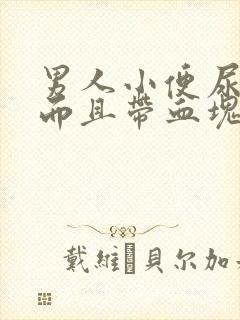 男人小便尿
而且帶血塊
戴維·貝尔加